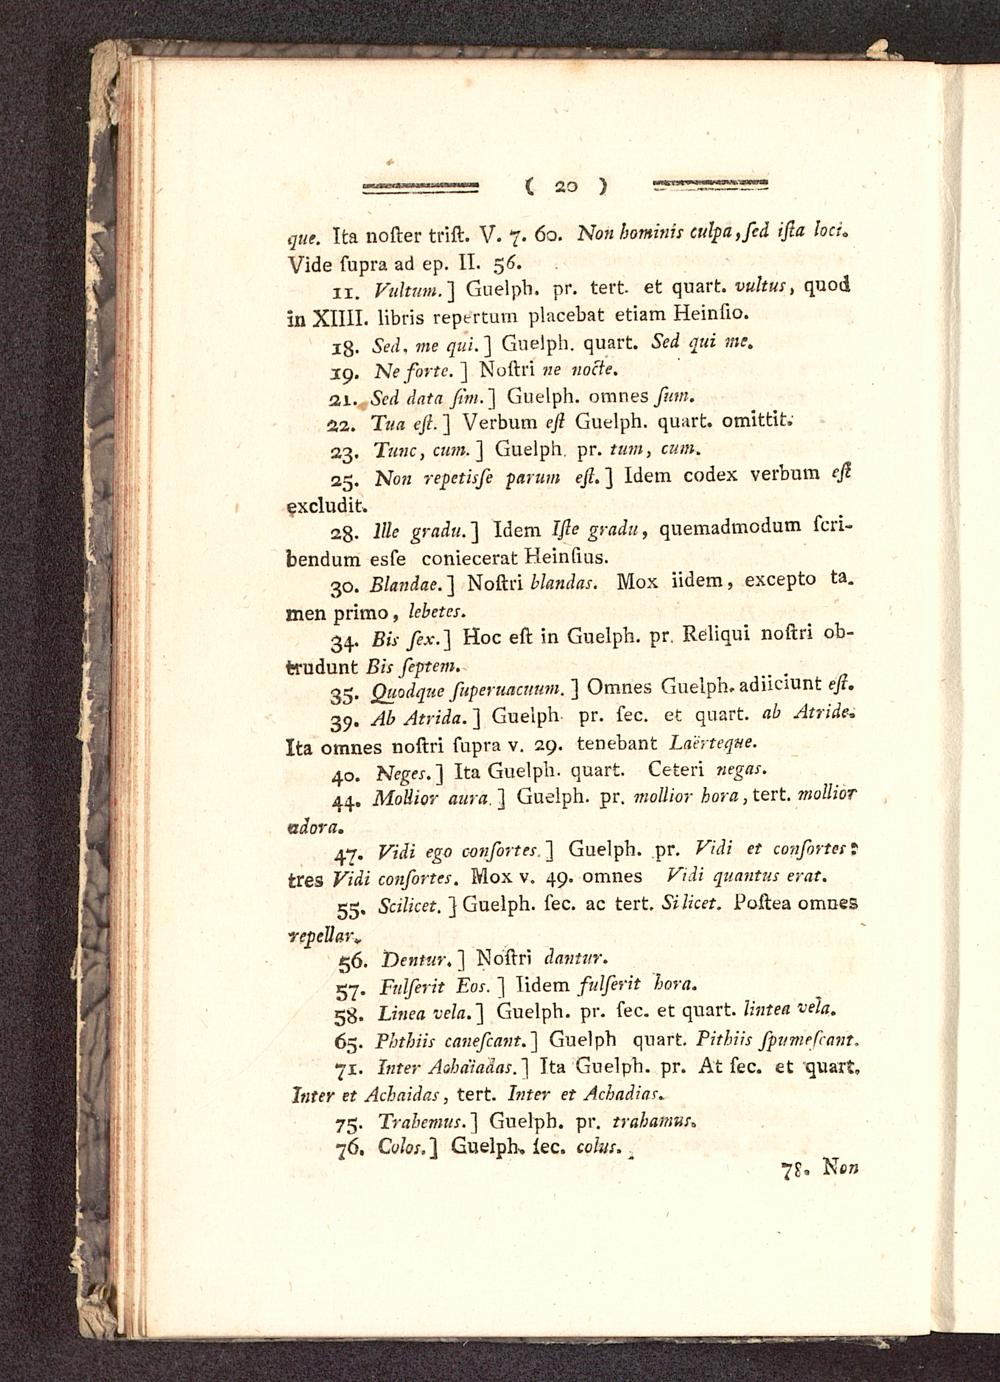 ( 20 )
que. Ita noſter triſt. V. 7. 60. Non hominis culpa, ſed iſta loci.
Vide ſupra ad ep. II. 56.
11. Vultum.] Guelph. pr. tert. et quart. vultus, quod
in XIIII. libris repertum placebat etiam Heinſio.
18. Sed, me qui.] Guelph. quart. Sed qui me.
19. Ne forte.] Noſtri ne nocte.
21. Sed data ſim.] Guelph. omnes ſum.
22. Tua eſt.] Verbum eſt Guelph. quart. omittit.
23. Tunc, cum.] Guelph. pr. tum, cum.
25. Non repetiſſe parum eſt.] Idem codex verbum eſt
excludit.
28. Ille gradu.] Idem Iſte gradu, quemadmodum ſcri-
bendum esſe coniecerat Heinſius.
30. Blandae.] Noſtri blandas. Mox iidem, excepto ta.
men primo, lebetes.
34. Bis ſex.] Hoc eſt in Guelph. pr. Reliqui noſtri ob-
trudunt Bis ſeptem.
35. Quodque ſuperuacuum.] Omnes Guelph. adiiciunt eſt.
39. Ab Atrida.] Guelph. pr. ſec. et quart. ab Atride.
Ita omnes noſtri ſupra v. 29. tenebant Laërteque.
40. Neges.] Ita Guelph. quart. Ceteri negas.
44. Mollior aura.] Guelph. pr. mollior hora, tert. mollior
adora.
47. Vidi ego conſortes.] Guelph. pr. Vidi et conſortes:
tres Vidi conſortes. Mox v. 49. omnes Vidi quantus erat.
55. Scilicet.] Guelph. ſec. ac tert. Silicet. Poſtea omnes
repellar.
56. Dentur.] Noſtri dantur.
57. Fulſerit Eos.] Iidem fulſerit hora.
58. Linea vela.] Guelph. pr. ſec. et quart. lintea vela.
65. Phthiis caneſcant.] Guelph quart. Pithiis ſpumeſcant.
71. Inter Achaïadas.] Ita Guelph. pr. At ſec. et quart.
Inter et Achaidas, tert. Inter et Achadias.
75. Trahemus.] Guelph. pr. trahamus.
76. Colos.] Guelph. ſec. colus.
78. Non